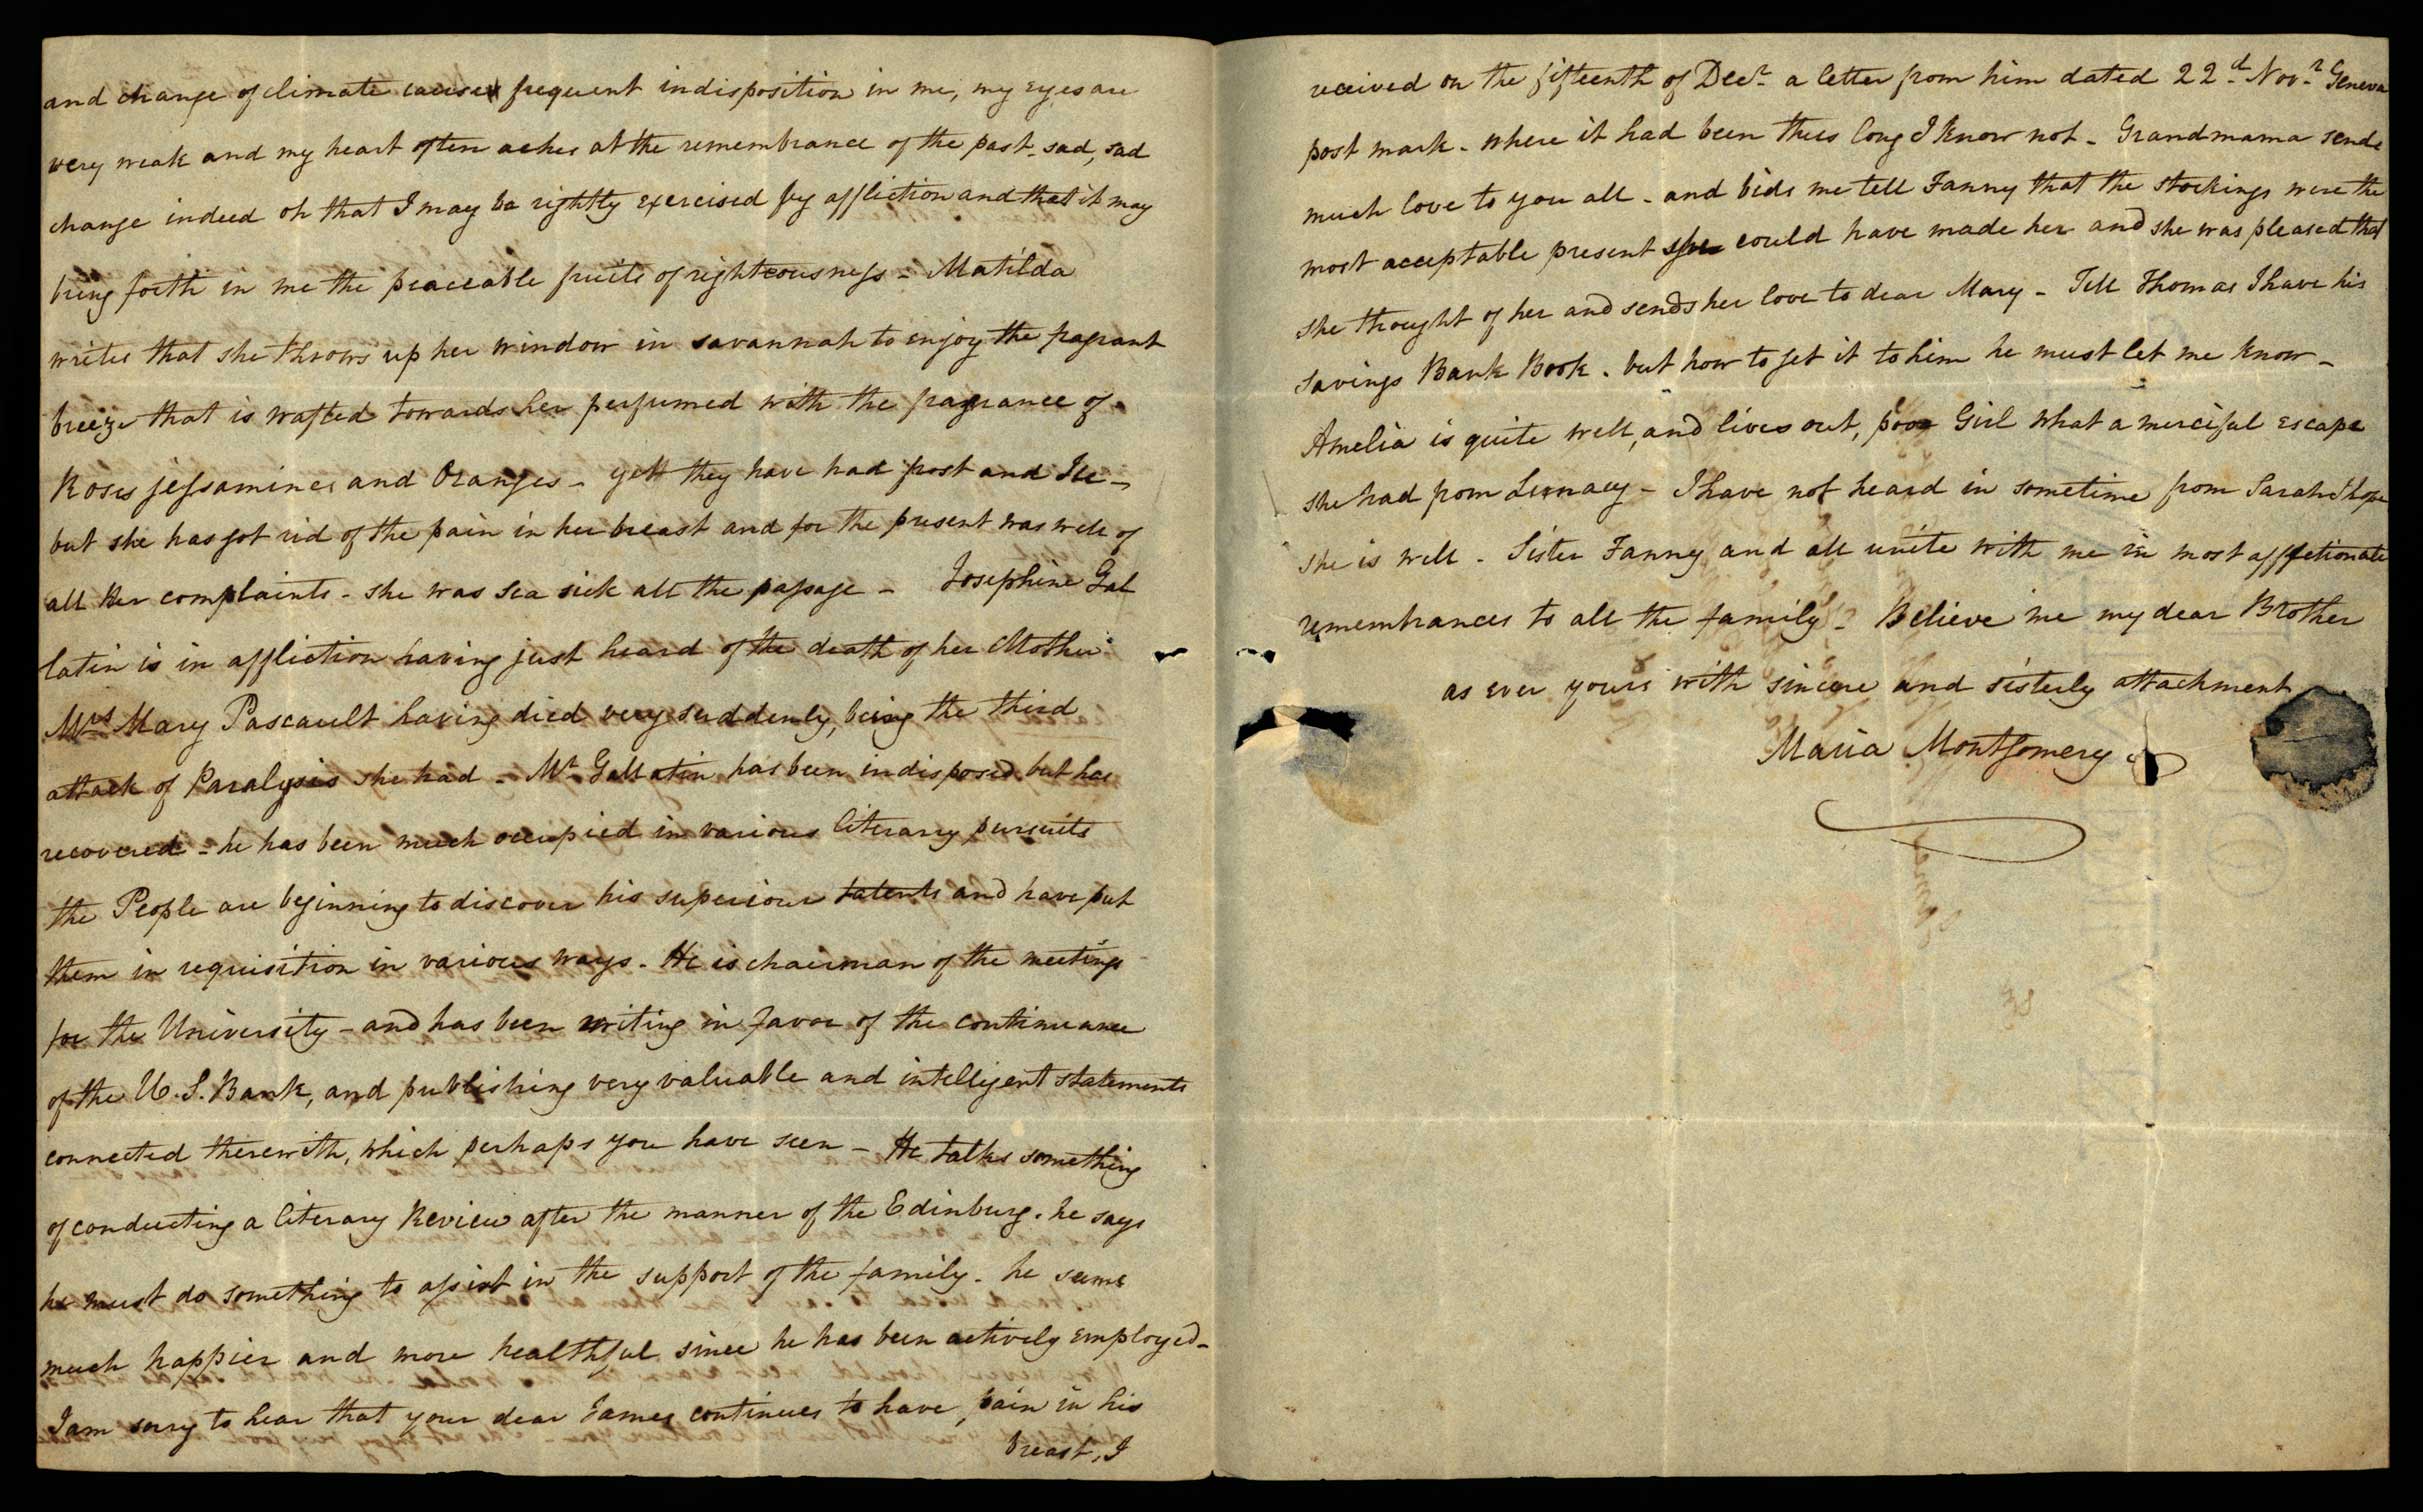 and change of climate causes frequent indisposition in me, my eyes are
very weak and my heart often aches at the remembrance of the past - sad, sad
change indeed oh that I may be rightly exercised by affliction and that it may
bring forth in me the peaceable fruits of righteousness - Matilda
writes that she throws up her window in savannah to enjoy the fragrant
breeze that is wafted towards her perfumed with the fragrance of
Roses jessamines and Oranges - yett they have had frost and Ice -
but she has got rid of the pain in her breast and for the present was well of
all Her complaints - she was sea sick all the passage - Josephine Gal
latin is in affliction having just heard of the death of her Mother
Mrs Mary Pascault having died very suddenly, being the third
attack of Paralysis she had - Mr Gallatin has been indisposed but has
recovered - he has been much occupied in various literary pursuits
the People are beginning to discover his superiour talents and have put
them in requisition in various ways - He is chairman of the meetings
for the University - and has been writing in favor of the continuance
of the U. S. Bank, and publishing very valuable and intelligent statements
connected therewith, which perhaps you have seen - He talks something
of conducting a literary Review after the manner of the Edinburg. he says
he must do something to assist in the support of the family - he seems
much happier and more healthful since he has been actively employed -
I am sorry to hear that your dear James continues to have pain in his
breast, I
received on the fifteenth of Decr a letter from him dated 22d Novr Geneva
post mark - where it had been thus long I know not - Grandmama sends
much love to you all - and bids me tell Fanny that the stockings were the
most acceptable present she could have made her and she was pleased that
she thought of her and sends her love to dear Mary - Tell Thomas I have his
savings Bank Book - but how to get it to him he must let me know -
Amelia is quite well, and lives out, poor Girl what a merciful escape
she had from Lunacy - I have not heard in sometime from Sarah I hope
she is well - Sister Fanny and all unite with me in most affetionate
remembrances to all the family - Believe me my dear Brother
as ever yours with sincere and sisterly attachment
Maria Montgomery